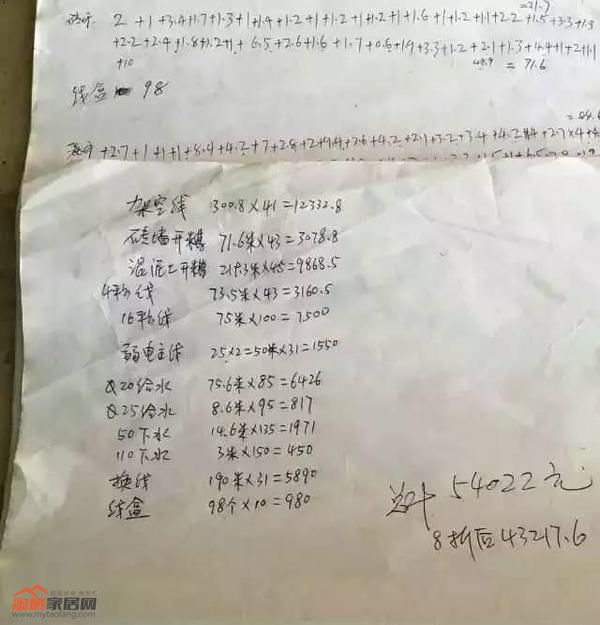 =21.7
砖开 2+1+3.4+1.7+1.3+1+1.4+1.2+1+1.2+1+1.2+1+1.6+1+1.2+1.1+2.2+1.5+3.3+1.3
+2.2+2.4+1.8+1.2+1+6.5+2.6+1.6+1.7+0.6+1.9+3.3+1.2+2.1+1.3+4.4+1+2+1.1
+10 49.9 = 71.6
线盒 98
+2.7+1+1+1+8.4+4.2+7+2.8+2+4.4+3.6+4.2+2.1+3.2+3.4+4.2+2.7×4
架空线 300.8×41=12332.8
砖墙开糟 71.6米×43=3078.8
混泥土开糟 219.3米×45=9868.5
4平线 73.5米×43=3160.5
16平线 75米×100=7500
弱电主线 25×2=50米×31=1550
Q20给水 75.6米×85=6426
Q25给水 8.6米×95=817
50下水 14.6米×135=1971
110下水 3米×150=450
换线 190米×31=5890
线盒 98个×10=980
总计 54022元
8折后43217.6
淘房家居网
www.mytaolang.com